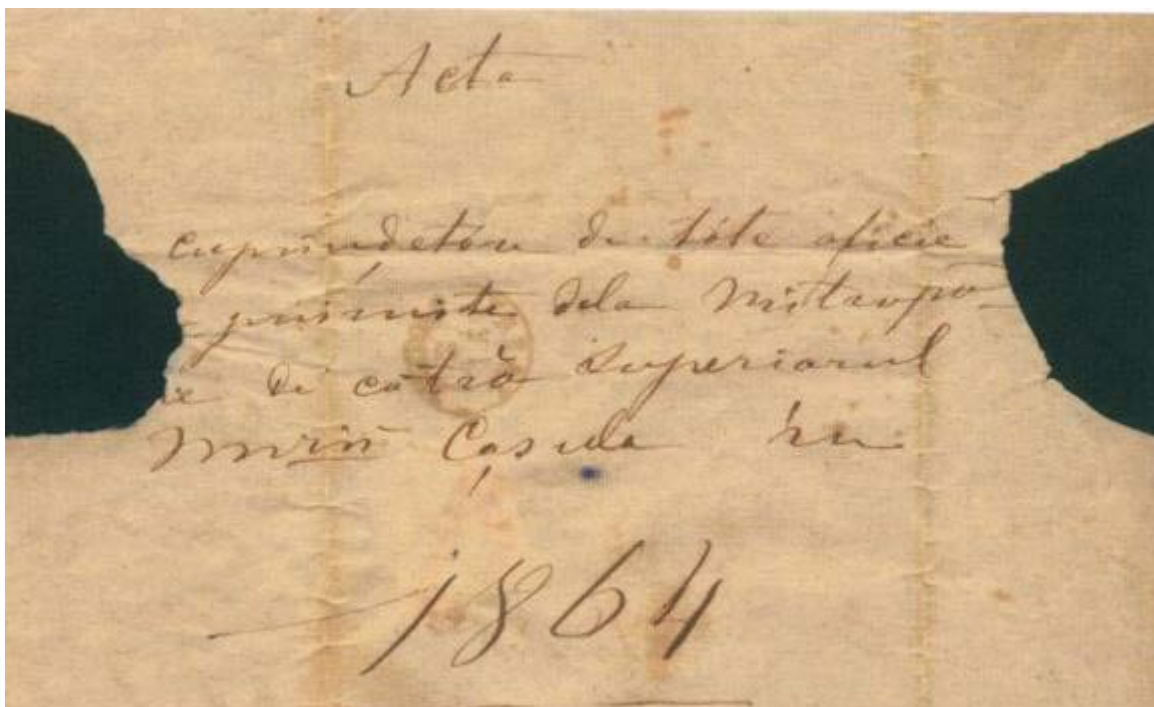 Acta
cuprindetóre de tóte oficie
primite dela Mitropo
e de cătră Superiorul
1864